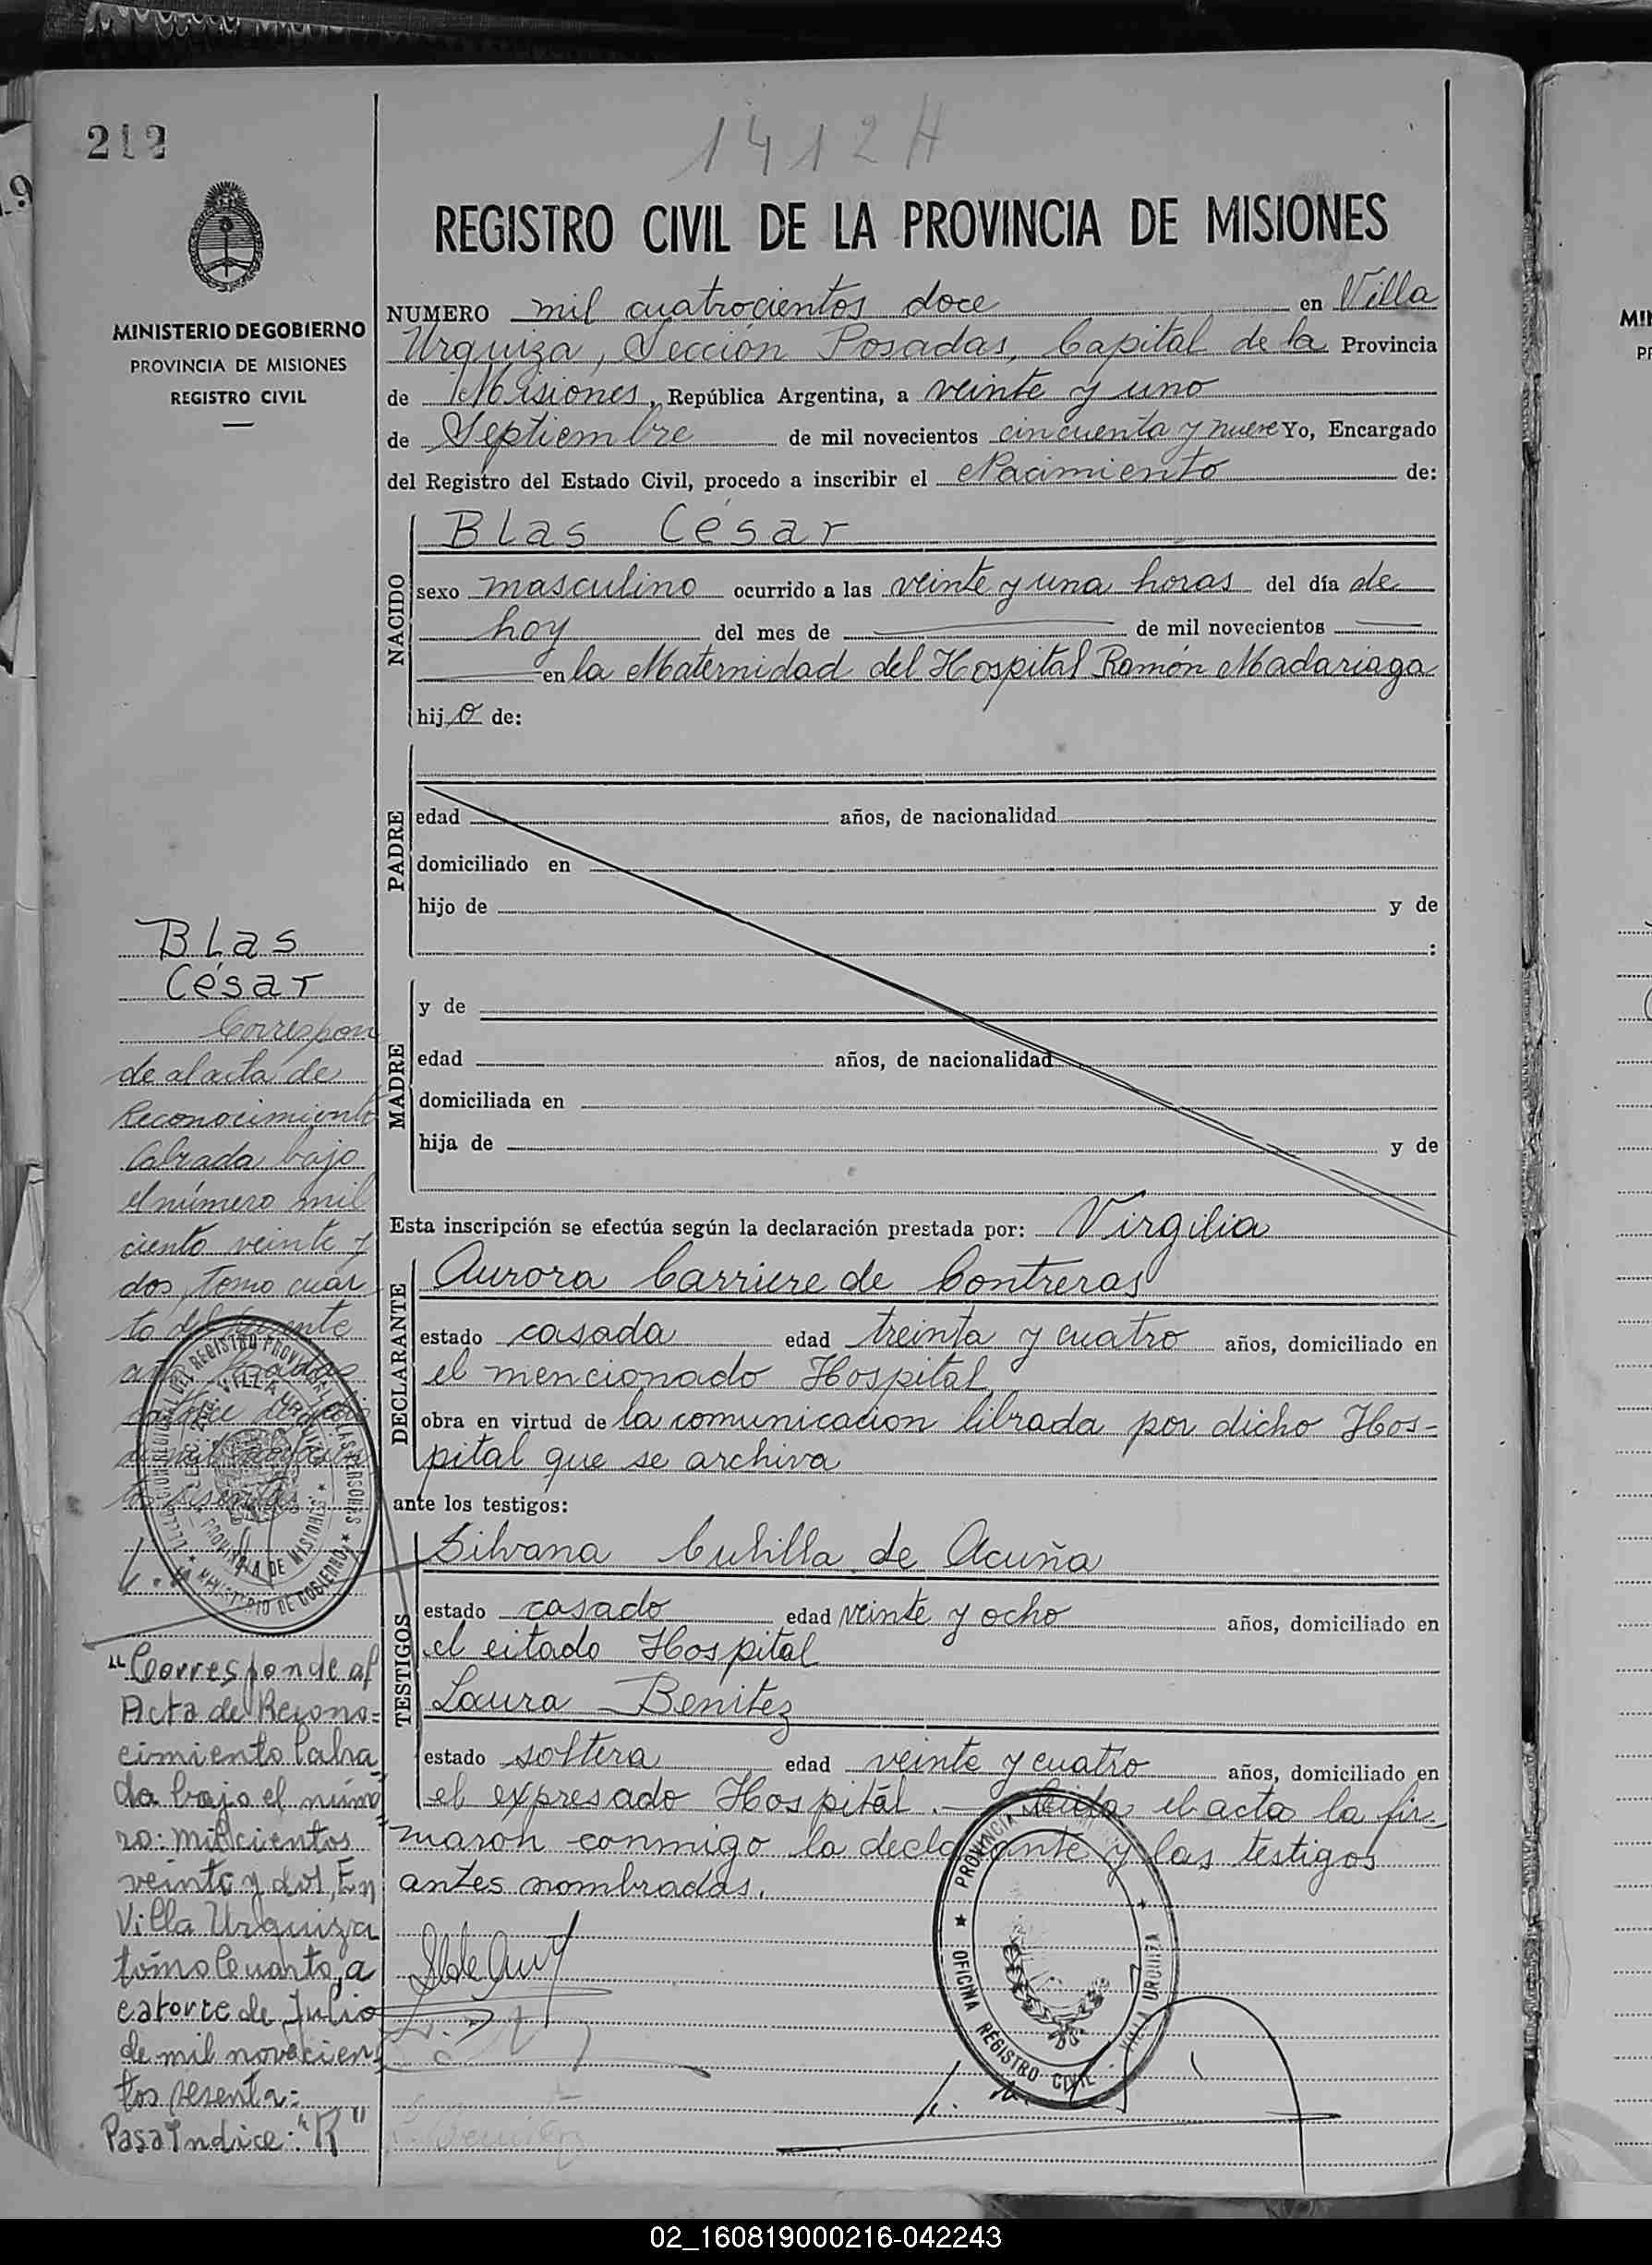 212
1412 H
REGISTRO CIVIL DE LA PROVINCIA DE MISIONES
MINISTERIO DE GOBIERNO
PROVINCIA DE MISIONES
REGISTRO CIVIL
NUMERO mil cuatrocientos doce en Villa
Urquiza, Sección Posadas, Capital de la Provincia
de Misiones, República Argentina, a veinte y uno
de Septiembre de mil novecientos cincuenta y nueve Yo, Encargado
del Registro del Estado Civil, procedo a inscribir el Nacimiento de:
NACIDO
Blas César
sexo masculino ocurrido a las veinte y una horas del día de
hoy del mes de de mil novecientos
en la Maternidad del Hospital Ramón Madariaga
hijo de:
PADRE
edad años, de nacionalidad
domiciliado en
hijo de y de
:
MADRE
y de
edad años, de nacionalidad
domiciliada en
hija de y de
Esta inscripción se efectúa según la declaración prestada por: Virgilia
DECLARANTE
Aurora Carriere de Contreras
estado casada edad treinta y cuatro años, domiciliado en
el mencionado Hospital
obra en virtud de la comunicacion librada por dicho Hos=
pital que se archiva
ante los testigos:
TESTIGOS
Silvana Cubilla de Acuña
estado casado edad veinte y ocho años, domiciliado en
el citado Hospital
Laura Benitez
estado soltera edad veinte y cuatro años, domiciliado en
el expresado Hospital. Leida el acta la fir-
maron conmigo la declarante y las testigos
antes nombradas.
PROVINCIA
OFICINA REGISTRO CIVIL
VILLA URQUIZA
Blas
César
Correspon
de al acta de
Reconocimiento
labrada bajo
el número mil
ciento veinte y
dos, Tomo cuar
to del
REGISTRO PROVINCIAL DE LAS PERSONAS
VILLA URQUIZA
PROVINCIA DE MISIONES
MINISTERIO DE GOBIERNO
"Corresponde al
Acta de Recono=
cimiento labra
da bajo el núme
ro: mil cientos
veinte y dos, En
Villa Urquiza
tómo Cuarto, a
catorce de Julio
de mil novecien
tos sesenta:
Pasa Indice: "R"
02_160819000216-042243